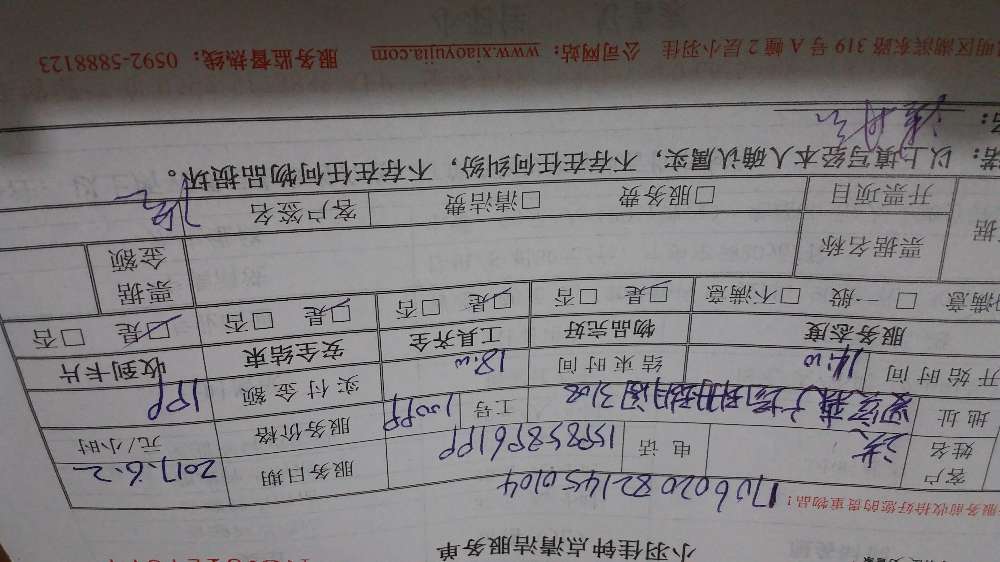 小羽佳钟点清洁服务单
服务前收拾好您的贵重物品！
1706020821450104
客户姓名 洪 电话 15985896199 服务日期 2017.6.2
地址 工号 10099 服务价格 元/小时
开始时间 14:00 结束时间 18:00 实付金额 199
服务态度 物品完好 工具齐全 安全结束 收到卡片
满意 □一般 □不满意 □是 □否 □是 □否 □是 □否 □是 □否
票据名称 票据金额
开票项目 □服务费 □清洁费 客户签名
以上填写经本人确认属实，不存在任何纠纷，不存在任何物品损坏。
明区湖滨东路 319 号 A 幢 2 层小羽佳 公司网站：www.xiaoyujia.com 服务监督热线：0592-5888123